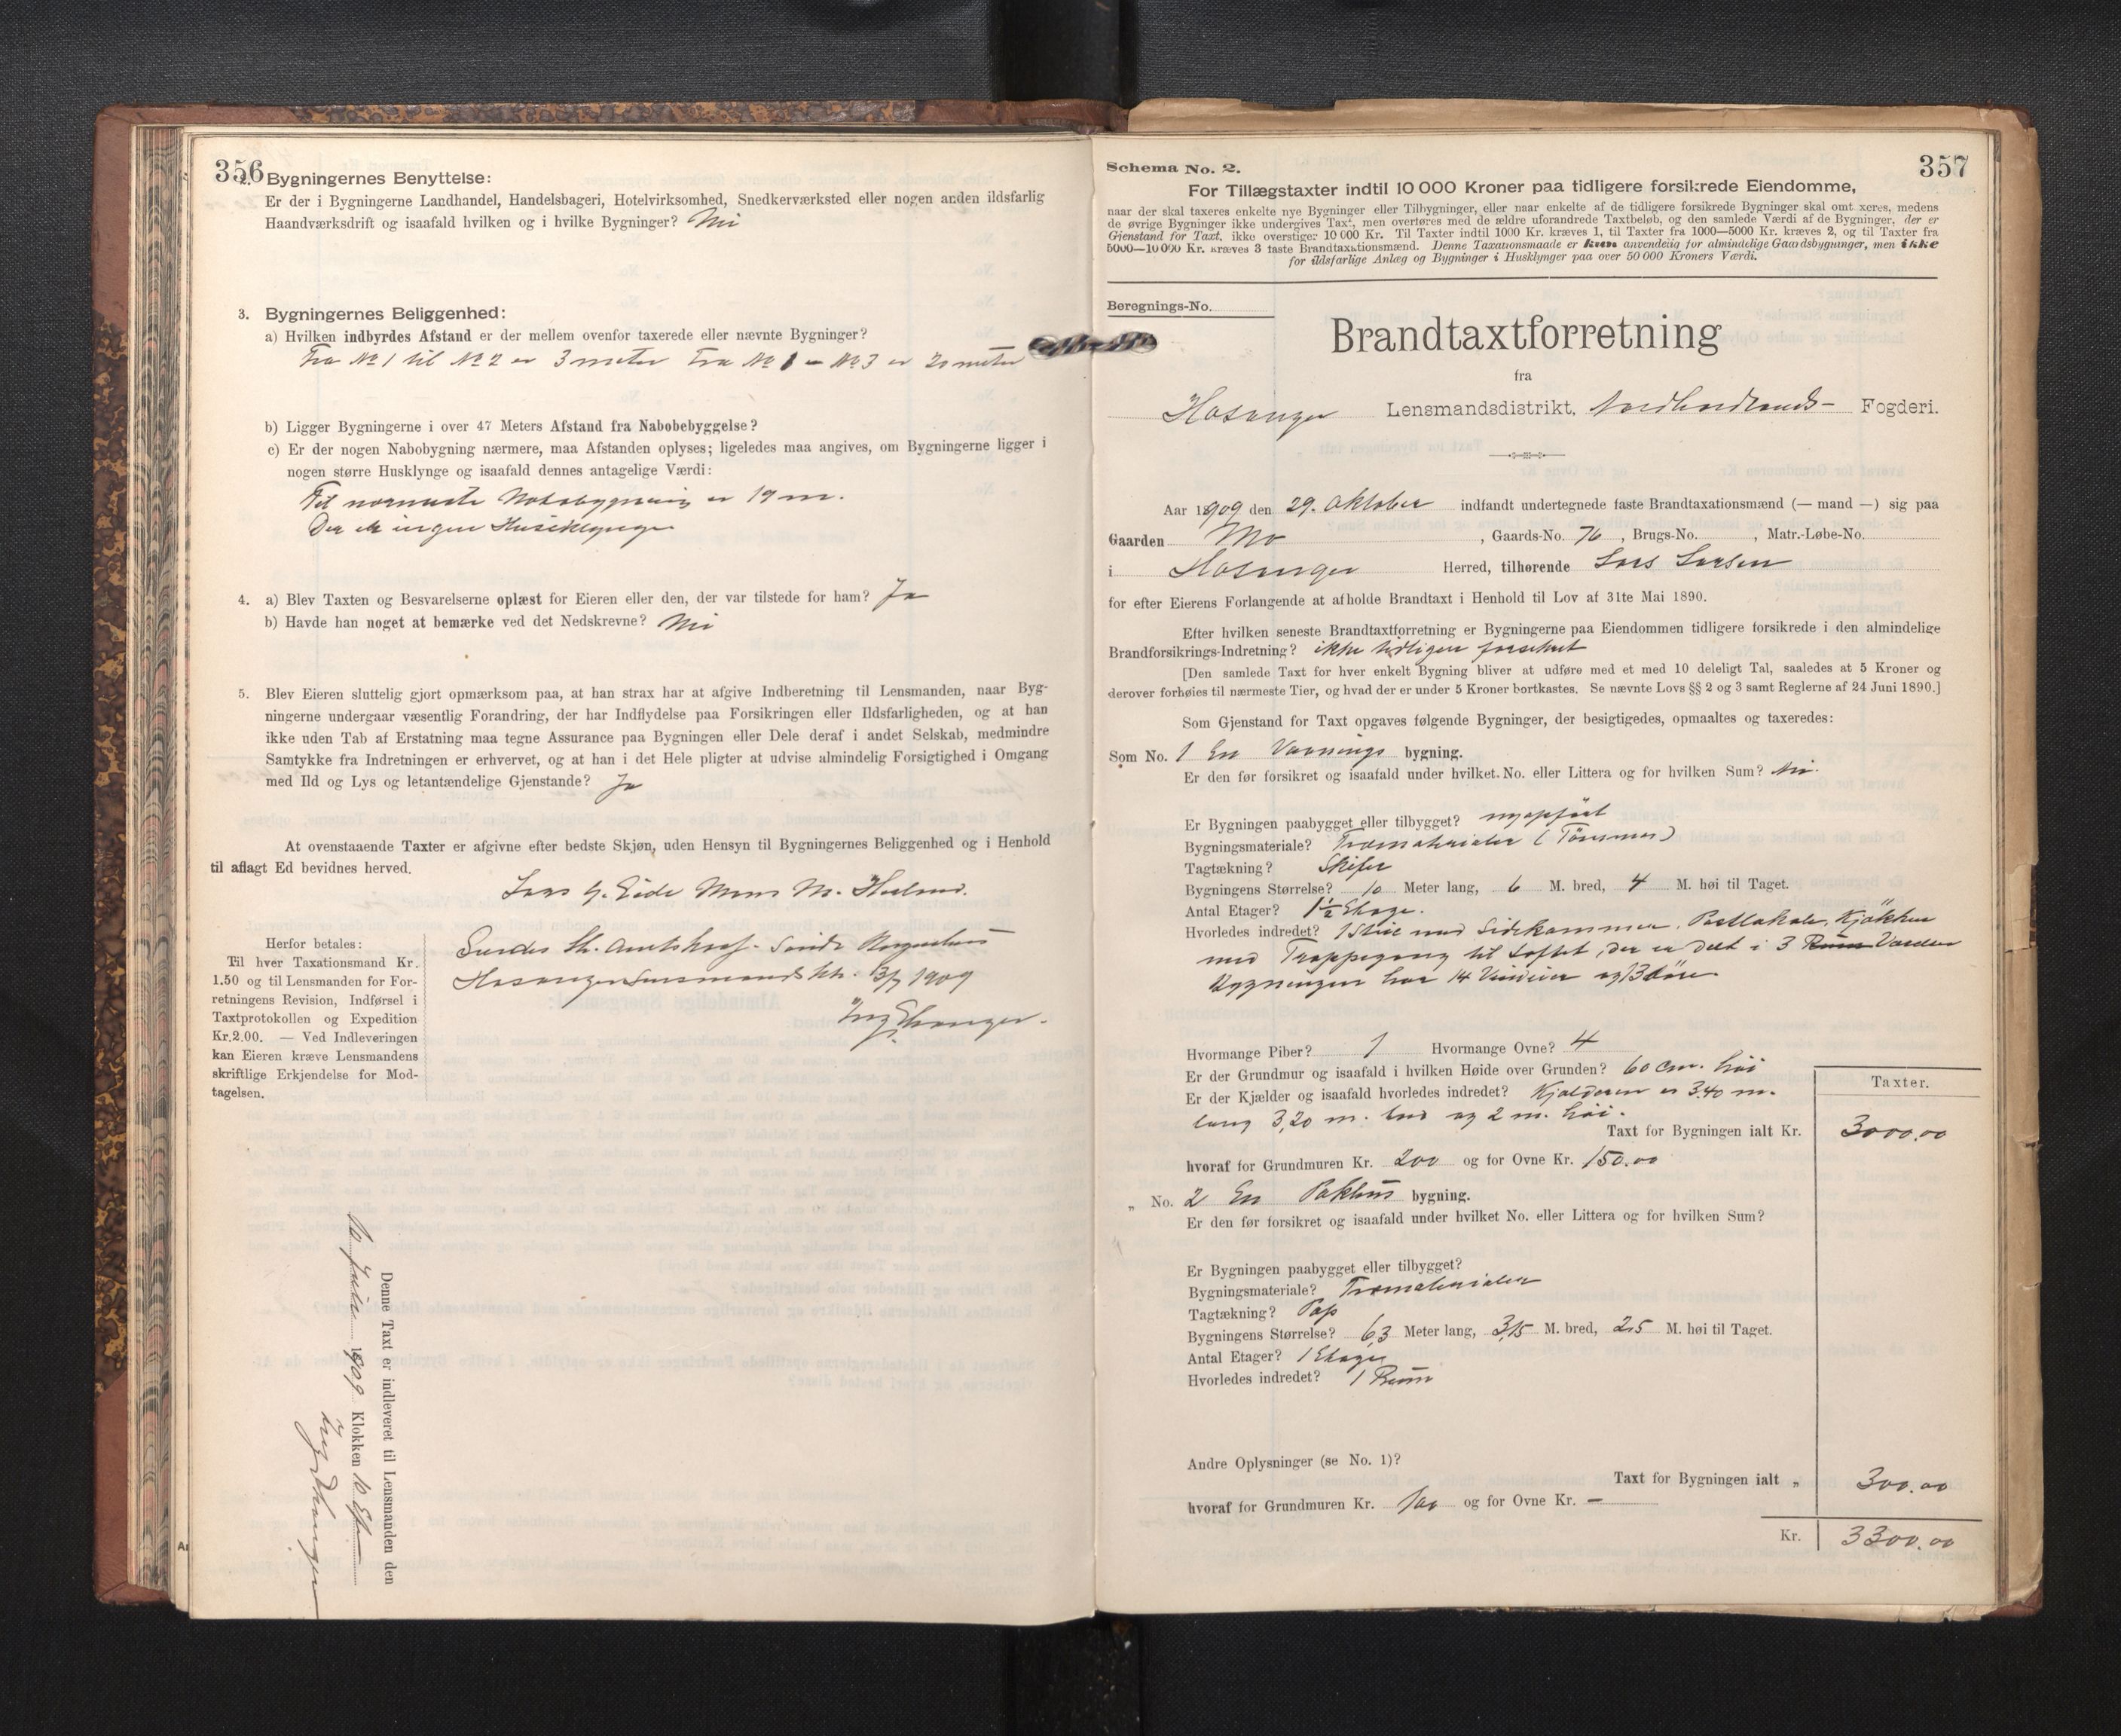 356
2. Bygningernes Benyttelse:
Er der i Bygningerne Landhandel, Handelsbageri, Hotelvirksomhed, Snedkerværksted eller nogen anden ildsfarlig
Haandværksdrift og isaafald hvilken og i hvilke Bygninger? Nei
3. Bygningernes Beliggenhed:
a) Hvilken indbyrdes Afstand er der mellem ovenfor taxerede eller nævnte Bygninger?
Fra No 1 til No 2 er 3 meter Fra No 1 - No 3 er 20 meter
b) Ligger Bygningerne i over 47 Meters Afstand fra Nabobebyggelse?
c) Er der nogen Nabobygning nærmere, maa Afstanden oplyses; ligeledes maa angives, om Bygningerne ligger i
nogen større Husklynge og isaafald dennes antagelige Værdi:
Til nærmeste Nabobygning er 19 m.
Der er ingen Husklynge
4. a) Blev Taxten og Besvarelserne oplæst for Eieren eller den, der var tilstede for ham? Ja
b) Havde han noget at bemærke ved det Nedskrevne? Nei
5. Blev Eieren sluttelig gjort opmærksom paa, at han strax har at afgive Indberetning til Lensmanden, naar Byg-
ningerne undergaar væsentlig Forandring, der har Indflydelse paa Forsikringen eller Ildsfarligheden, og at han
ikke uden Tab af Erstatning maa tegne Assurance paa Bygningen eller Dele deraf i andet Selskab, medmindre
Samtykke fra Indretningen er erhvervet, og at han i det Hele pligter at udvise almindelig Forsigtighed i Omgang
med Ild og Lys og letantændelige Gjenstande? Ja
At ovenstaaende Taxter er afgivne efter bedste Skjøn, uden Hensyn til Bygningernes Beliggenhed og i Henhold
til aflagt Ed bevidnes herved.
Lars Eide Mons M.
Herfor betales:
Til hver Taxationsmand Kr.
1.50 og til Lensmanden for For-
retningens Revision, Indførsel i
Taxtprotokollen og Expedition
Kr.2.00. — Ved Indleveringen
kan Eieren kræve Lensmandens
skriftlige Erkjendelse for Mod-
tagelsen.
Sendes
Hosanger Lensmandsktr. 1909
Denne Taxt er indleveret til Lensmanden den
10 1909 Klokken 10
357
Schema No. 2.
For Tillægstaxter indtil 10 000 Kroner paa tidligere forsikrede Eiendomme,
naar der skal taxeres enkelte nye Bygninger eller Tilbygninger, eller naar enkelte af de tidligere forsikrede Bygninger skal omtaxeres, medens
de øvrige Bygninger ikke undergives Taxt, men overføres med de ældre uforandrede Taxtbeløb, og den samlede Værdi af de Bygninger, der er
Gjenstand for Taxt, ikke overstiger 10 000 Kr. Til Taxter indtil 1000 Kr. kræves 1, til Taxter fra 1000—5000 Kr. kræves 2, og til Taxter fra
5000—10 000 Kr. kræves 3 faste Brandtaxtionsmænd. Denne Taxationsmaade er kun anvendelig for almindelige Gaardsbygninger, men ikke
for ildsfarlige Anlæg og Bygninger i Husklynger paa over 50 000 Kroners Værdi.
Beregnings-No.
Brandtaxtforretning
fra
Hosanger Lensmandsdistrikt, Nordhordlands Fogderi.
Aar 1909 den 29. Oktober indfandt undertegnede faste Brandtaxationsmænd (— mand —) sig paa
Gaarden Mo, Gaards-No. 76, Brugs-No. , Matr.-Løbe-No.
i Hosanger Herred, tilhørende Lars Larsen
for efter Eierens Forlangende at afholde Brandtaxt i Henhold til Lov af 31te Mai 1890.
Efter hvilken seneste Brandtaxtforretning er Bygningerne paa Eiendommen tidligere forsikrede i den almindelige
Brandforsikrings-Indretning? ikke tidligere forsikret
[Den samlede Taxt for hver enkelt Bygning bliver at udføre med et med 10 deleligt Tal, saaledes at 5 Kroner og
derover forhøies til nærmeste Tier, og hvad der er under 5 Kroner bortkastes. Se nævnte Lovs §§ 2 og 3 samt Reglerne af 24 Juni 1890.]
Som Gjenstand for Taxt opgaves følgende Bygninger, der besigtigedes, opmaaltes og taxeredes:
Som No. 1 En Vaanings bygning.
Er den før forsikret og isaafald under hvilket No. eller Littera og for hvilken Sum? Nei.
Er Bygningen paabygget eller tilbygget? nyopført
Bygningsmateriale? Træmaterialer (Tømmer)
Tagtækning? Skifer
Bygningens Størrelse? 10 Meter lang, 6 M. bred, 4 M. høi til Taget.
Antal Etager? 1½ Etage.
Hvorledes indredet? 1 Stue med Sidekammer, Postlokale, Kjøkken
med Trappegang til Loftet, der er delt i 3 Rum Værelser
Bygningen har 14 Vinduer og 13 døre
Hvormange Piber? 1 Hvormange Ovne? 4
Er der Grundmur og isaafald i hvilken Høide over Grunden? 60 cm. høi
Er der Kjælder og isaafald hvorledes indredet? Kjælderen er 3.40 m.
lang 3,20 m. bred og 2 m. høi.
Taxter.
Taxt for Bygningen ialt Kr. 3000.00
hvoraf for Grundmuren Kr. 200 og for Ovne Kr. 150.00
„ No. 2 En Pakhus bygning.
Er den før forsikret og isaafald under hvilket No. eller Littera og for hvilken Sum?
Er Bygningen paabygget eller tilbygget?
Bygningsmateriale? Træmaterialer
Tagtækning? Pap
Bygningens Størrelse? 6,3 Meter lang, 3,15 M. bred, 2,5 M. høi til Taget.
Antal Etager? 1 Etage
Hvorledes indredet? 1 Rum
Andre Oplysninger (se No. 1)?
Taxt for Bygningen ialt „ 300.00
hvoraf for Grundmuren Kr. 100 og for Ovne Kr. —
Kr. 3300.00